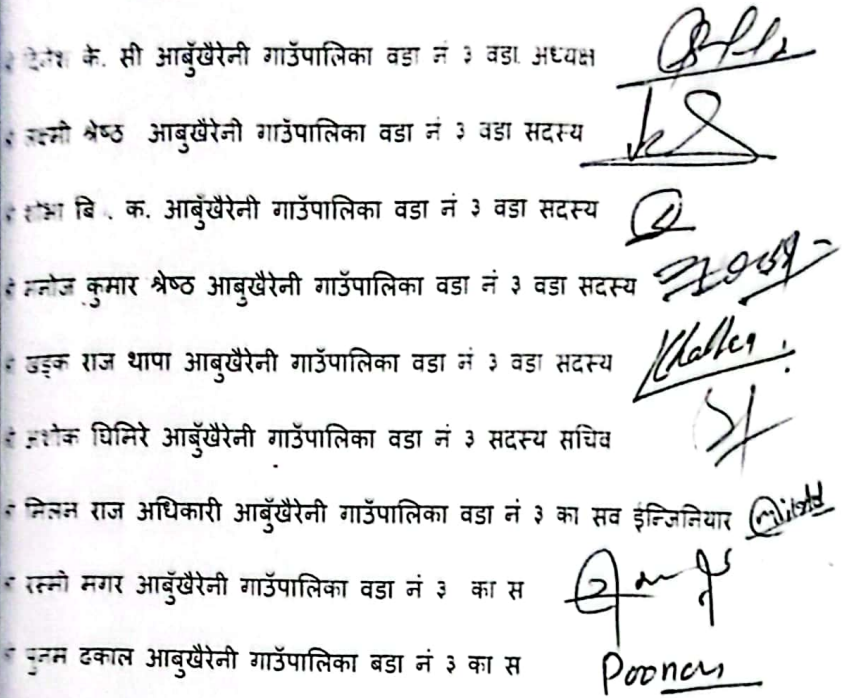 श्री दिनेश के. सी आबुँखैरेनी गाउँपालिका वडा नं ३ वडा अध्यक्ष
श्री लक्ष्मी श्रेष्ठ आबुँखैरेनी गाउँपालिका वडा नं ३ वडा सदस्य
श्री शोभा बि . क. आबुँखैरेनी गाउँपालिका वडा नं ३ वडा सदस्य
श्री मनोज कुमार श्रेष्ठ आबुखैरेनी गाउँपालिका वडा नं ३ वडा सदस्य
श्री खड्क राज थापा आबुखैरेनी गाउँपालिका वडा नं ३ वडा सदस्य
श्री अशोक घिमिरे आबुँखैरेनी गाउँपालिका वडा नं ३ सदस्य सचिव
श्री मिलन राज अधिकारी आबुँखैरेनी गाउँपालिका वडा नं ३ का सव ईन्जिनियार
श्री रस्मी मगर आबुँखैरेनी गाउँपालिका वडा नं ३ का स
श्री पुनम ढकाल आबुखैरेनी गाउँपालिका बडा नं ३ का स Poonam